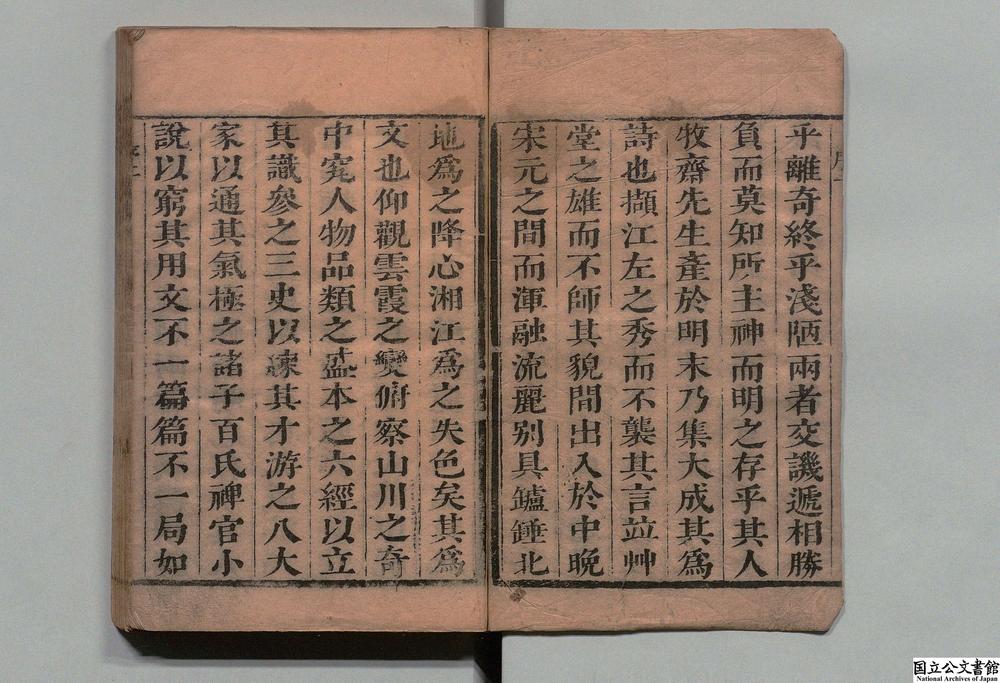 乎離奇終乎淺陋兩者交譏遞相勝
負而莫知所主神而明之存乎其人
牧齋先生產於明末乃集大成其爲
詩也擷江左之秀而不襲其言竝艸
堂之雄而不師其貌間出入於中晚
宋元之間而渾融流麗别具鑪錘北
地爲之降心湘江爲之失色矣其爲
文也仰觀雲霞之變俯察山川之奇
中究人物品類之盛本之六經以立
其識參之三史以練其才游之八大
家以通其氣極之諸子百氏稗官小
說以窮其用文不一篇篇不一局如
国立公文書館
National Archives of Japan